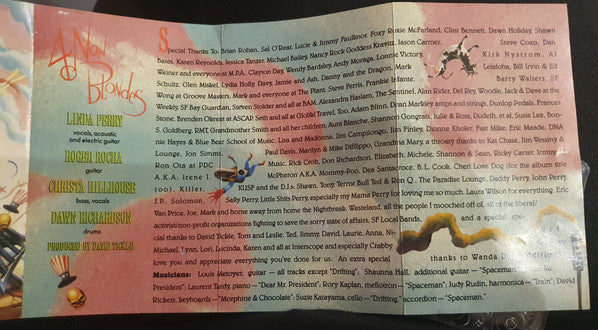 4 Non Blondes
LINDA PERRY
vocals, acoustic
and electric guitar
ROGER ROCHA
guitar
CHRISTA HILLHOUSE
bass, vocals
DAWN RICHARDSON
drums
PRODUCED BY DAVID TICKLE
Special Thanks To: Brian Rohan, Sal O'Rear, Lucie & Jimmy Paulknor, Foxy Roxie McFarland, Clint Bennett, Dawn Holiday, Shawn
Bates, Karen Reynolds, Jessica Tanzer, Michael Bailey, Nancy Rock Goddess Kravitz, Jason Carmer, Steve Coats, Dan
Weiner and everyone at M.P.A., Clayton Day, Wendy Bardsley, Andy Moraga, Lonnie Victory Kirk Nystrom, Al
Schultz, Glen Miskel, Lydia Holly, Davy, Jamie and Ash, Danny and the Dragon, Mark Leialoha, Bill Irvin & Ed
Wong at Groove Masters, Mark and everyone at The Plant, Steve Ferris, Frankie Infante, Barry Walters, SF
Weekly, SF Bay Guardian, Steven Stolder and all at BAM, Alexandra Haslam, The Sentinel, Alan Rider, Del Rey, Woodie, Jack & Dave at the
Stone, Brenden Okrest at ASCAP, Seth and all at Global Travel, Too, Adam Blinn, Dean Markley amps and strings, Dunlop Pedals, Frances
S. Goldberg, RMT, Grandmother Smith and all her children, Aunt Blanche, Shannon Gongrats, Julie & Ross, Dudeth, et al, Susie Lee, Bon-
nie Hayes & Blue Bear School of Music, Lisa and Madonna, Jim Campilongo, Jim Finley, Dionne Kholer, Fast Mike, Eric Meade, DNA
Lounge, Jon Simms, Paul Davis, Marilyn & Mike DiFilippo, Grandma Mary, a thorny thanks to Kat Chase, Jim Wessiny &
Ron Ota at PDC Music, Rick Croft, Don Richardson, Elizabeth, Michele, Shannon & Sean, Ricky Carter, Irmatz
A.K.A. Irene I. McPheron A.K.A. Mommy-Poo, Dea Santacroce, B. L. Cook, Cheri Love Dog (for the album title
too), Killer, KUSF and the DJs: Shawn, Tony, Terror Bull Ted & Ran Q., The Paradise Lounge, Daddy Perry, John Perry,
J.P., Solomon, Sally Perry, Little Shits Perry, especially my Mama Perry for loving me so much, Laura Wilson for everything, Eric
Van Price, Joe, Mark and home away from home the Nightbreak, Wasteland, all the people I mooched off of, all of the liberal/
activist/non-profit organizations fighting to save the sorry state of affairs, SF Local Bands, and a special, spe-
cial thanks to David Tickle, Tom and Leslie, Ted, Jimmy, David, Laurie, Anna, Ni-
Michael, Lynn, Lori, Lucinda, Karen and all at Interscope and especially Crabby
love you and appreciate everything you've done for us. An extra special thanks to Wanda Day.
Musicians: Louis Metoyer, guitar — all tracks except "Drifting"; Shaunna Hall, additional guitar — "Spaceman,"
President"; Laurent Tardy, piano — "Dear Mr. President"; Rory Kaplan, mellotron — "Spaceman"; Judy Rudin, harmonica — "Train"; David
Rickets, keyboards — "Morphine & Chocolate"; Suzie Katayama, cello — "Drifting," accordion — "Spaceman."